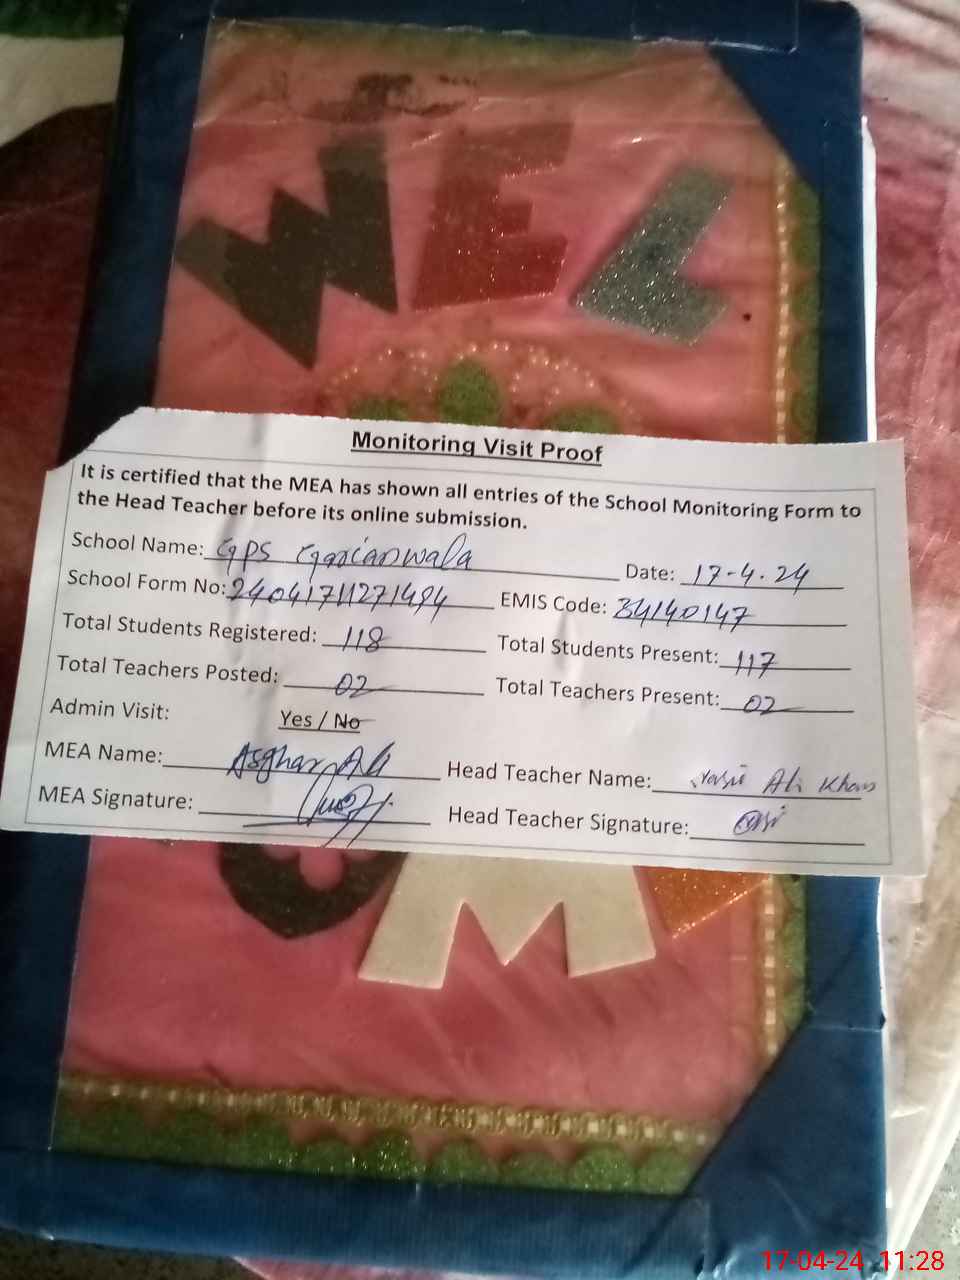 WEL
Monitoring Visit Proof
It is certified that the MEA has shown all entries of the School Monitoring Form to
the Head Teacher before its online submission.
School Name: GPS Date: 17-4-24
School Form No: 24041711271494 EMIS Code: 34140147
Total Students Registered: 118 Total Students Present: 117
Total Teachers Posted: 02 Total Teachers Present: 02
Admin Visit: Yes / No
MEA Name: Asghar Ali Head Teacher Name: Ali Khan
MEA Signature: Head Teacher Signature:
OM
17-04-24 11:28